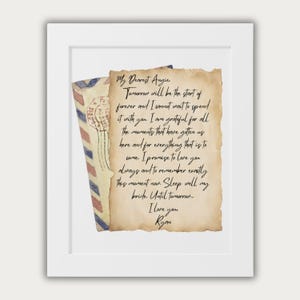 My Dearest Angie,
Tomorrow will be the start of
forever and I cannot wait to spend
it with you. I am grateful for all
the moments that have gotten us
here and for everything that is to
come. I promise to love you
always and to remember exactly
this moment now. Sleep well my
bride. Until tomorrow.
I love you
Ryan